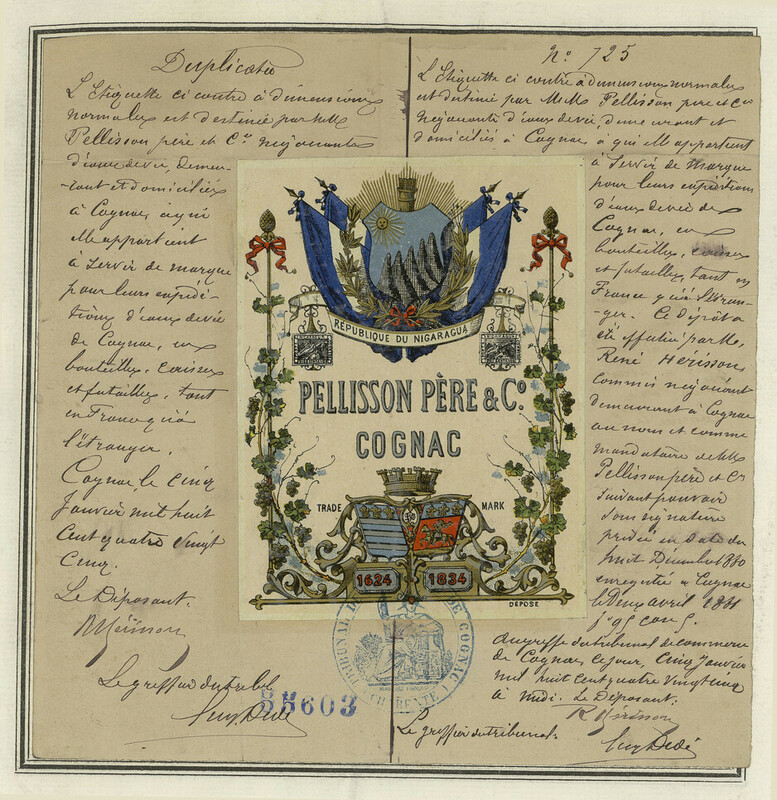 Duplicata
L'Etiquette ci contre à dimensions
normales est destinée par MM
Pellisson père et Cie négociants
d'eaux de vie, demeu-
-rant et domiciliés
à Cognac, à qui
elle appartient
à servir de marque
pour leurs expédi-
tions d'eaux de vie
de Cognac, en
bouteilles, caisses
et futailles, tant
en France qu'à
l'étranger.
Cognac, le cinq
Janvier mil huit
cent quatre vingt
cinq.
Le Déposant:
R Hérisson
Le greffier du trbal
55603
No 725
L'Etiquette ci contre à dimensions normales
est destinée par MM Pellisson père et Cie
négociants d'eaux de vie, demeurant et
domiciliés à Cognac à qui elle appartient
à servir de marque
pour leurs expéditions
d'eaux de vie de
Cognac, en
bouteilles, caisses
et futailles, tant en
France qu'à l'étran-
-ger. Ce Dépôt a
été effectué par M.
René Hérisson
commis négociant
demeurant à Cognac
au nom et comme
mandataire de MM
Pellisson père et Cie
suivant pouvoir
sous signature
privée en date du
huit Décembre 1880
enregistré à Cognac
le Deux avril 1881
Au greffe du tribunal de commerce
de Cognac, ce jour, Cinq Janvier
mil huit cent quatre vingt cinq
à midi. Le Déposant:
R Hérisson
Le greffier du tribunal:
RÉPUBLIQUE DU NIGARAGUA
PELLISSON PÈRE & Co.
COGNAC
TRADE MARK
1624 1834
DÉPOSÉ
TRIBUNAL DE COMMERCE DE COGNAC
CHARENTE